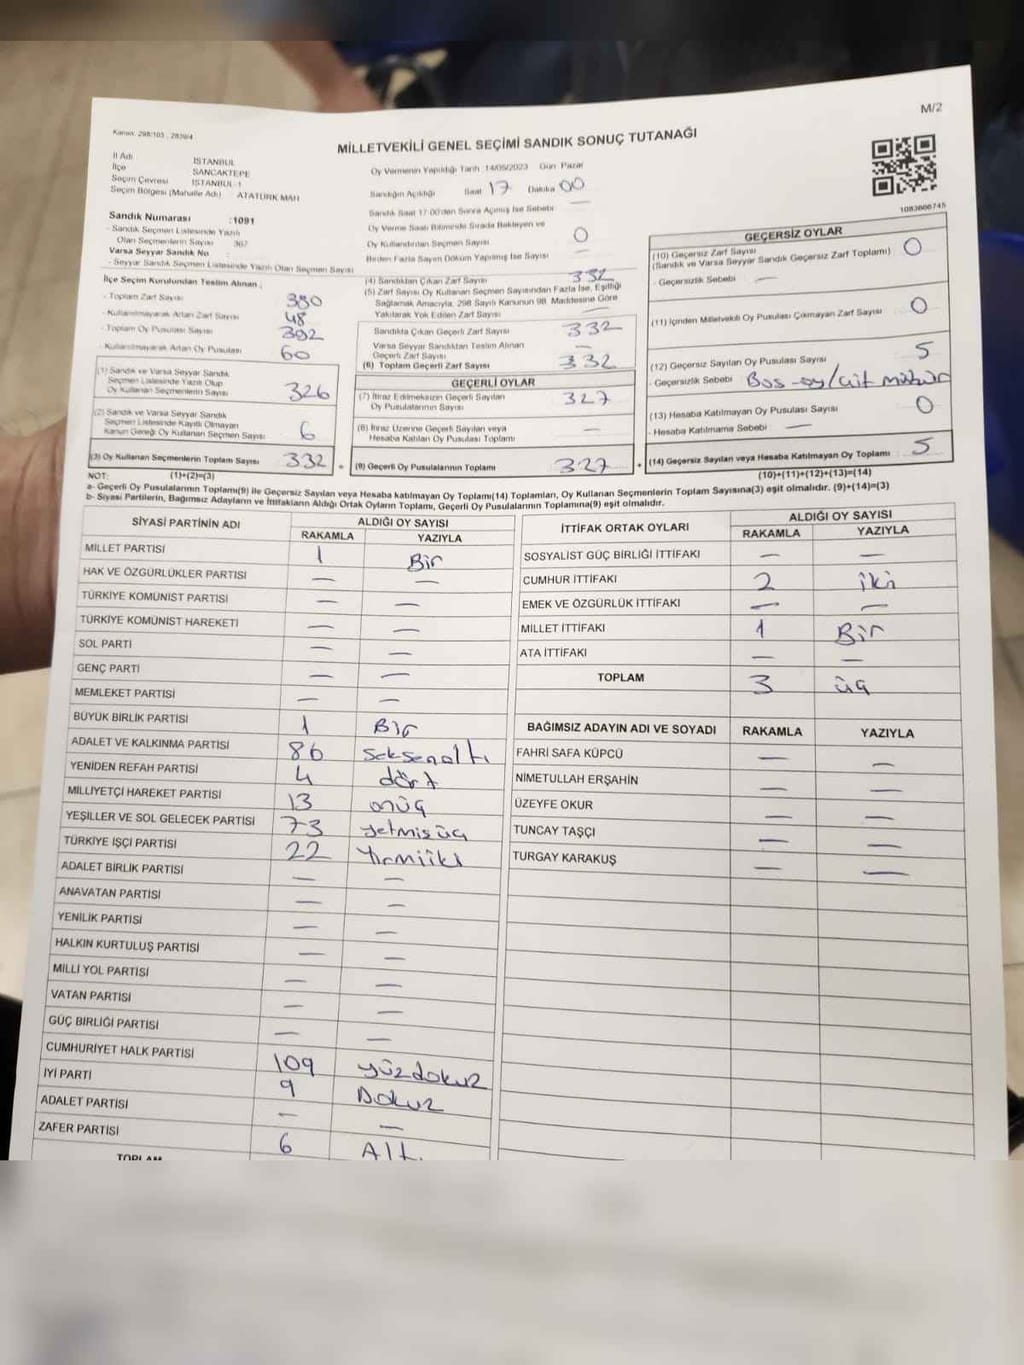 M/2
Kanun: 298/105 - 2839/4
MİLLETVEKİLİ GENEL SEÇİMİ SANDIK SONUÇ TUTANAĞI
İl Adı İSTANBUL
İlçe SANCAKTEPE
Seçim Çevresi İSTANBUL-1
Seçim Bölgesi (Mahalle Adı) : ATATÜRK MAH
Oy Vermenin Yapıldığı Tarih 14/05/2023 Gün Pazar
Sandığın Açıldığı Saat 17 Dakika 00
Sandık Saat 17.00'den Sonra Açılmış İse Sebebi —
Oy Verme Saati Bitiminde Sırada Bekleyen ve
Oy Kullandırılan Seçmen Sayısı 0
Birden Fazla Sayım Döküm Yapılmış İse Sayısı —
1083666745
Sandık Numarası : 1091
- Sandık Seçmen Listesinde Yazılı
Olan Seçmenlerin Sayısı 367
Varsa Seyyar Sandık No :
- Seyyar Sandık Seçmen Listesinde Yazılı Olan Seçmen Sayısı
İlçe Seçim Kurulundan Teslim Alınan ;
- Toplam Zarf Sayısı 380
- Kullanılmayarak Artan Zarf Sayısı 48
- Toplam Oy Pusulası Sayısı 392
- Kullanılmayarak Artan Oy Pusulası 60
(1) Sandık ve Varsa Seyyar Sandık
Seçmen Listesinde Yazılı Olup
Oy Kullanan Seçmenlerin Sayısı 326
(2) Sandık ve Varsa Seyyar Sandık
Seçmen Listesinde Kayıtlı Olmayan
Kanun Gereği Oy Kullanan Seçmen Sayısı 6
(3) Oy Kullanan Seçmenlerin Toplam Sayısı 332
(4) Sandıktan Çıkan Zarf Sayısı 332
(5) Zarf Sayısı Oy Kullanan Seçmen Sayısından Fazla İse, Eşitliği
Sağlamak Amacıyla, 298 Sayılı Kanunun 98. Maddesine Göre
Yakılarak Yok Edilen Zarf Sayısı
Sandıkta Çıkan Geçerli Zarf Sayısı 332
Varsa Seyyar Sandıktan Teslim Alınan
Geçerli Zarf Sayısı —
(6) Toplam Geçerli Zarf Sayısı 332
GEÇERLİ OYLAR
(7) İtiraz Edilmeksizin Geçerli Sayılan
Oy Pusulalarının Sayısı 327
(8) İtiraz Üzerine Geçerli Sayılan veya
Hesaba Katılan Oy Pusulası Toplamı —
= (9) Geçerli Oy Pusulalarının Toplamı 327
GEÇERSİZ OYLAR
(10) Geçersiz Zarf Sayısı
(Sandık ve Varsa Seyyar Sandık Geçersiz Zarf Toplamı) 0
- Geçersizlik Sebebi —
(11) İçinden Milletvekili Oy Pusulası Çıkmayan Zarf Sayısı 0
(12) Geçersiz Sayılan Oy Pusulası Sayısı 5
- Geçersizlik Sebebi Boş-oy/çift mühür
(13) Hesaba Katılmayan Oy Pusulası Sayısı 0
- Hesaba Katılmama Sebebi —
+ (14) Geçersiz Sayılan veya Hesaba Katılmayan Oy Toplamı 5
NOT: (1)+(2)=(3) (10)+(11)+(12)+(13)=(14)
a- Geçerli Oy Pusulalarının Toplamı(9) ile Geçersiz Sayılan veya Hesaba katılmayan Oy Toplamı(14) Toplamları, Oy Kullanan Seçmenlerin Toplam Sayısına(3) eşit olmalıdır. (9)+(14)=(3)
b- Siyasi Partilerin, Bağımsız Adayların ve İttifakların Aldığı Ortak Oyların Toplamı, Geçerli Oy Pusulalarının Toplamına(9) eşit olmalıdır.
SİYASİ PARTİNİN ADI ALDIĞI OY SAYISI
RAKAMLA YAZIYLA
MİLLET PARTİSİ 1 Bir
HAK VE ÖZGÜRLÜKLER PARTİSİ — —
TÜRKİYE KOMÜNİST PARTİSİ — —
TÜRKİYE KOMÜNİST HAREKETİ — —
SOL PARTİ — —
GENÇ PARTİ — —
MEMLEKET PARTİSİ — —
BÜYÜK BİRLİK PARTİSİ 1 Bir
ADALET VE KALKINMA PARTİSİ 86 seksenaltı
YENİDEN REFAH PARTİSİ 4 dört
MİLLİYETÇİ HAREKET PARTİSİ 13 onüç
YEŞİLLER VE SOL GELECEK PARTİSİ 73 yetmişüç
TÜRKİYE İŞÇİ PARTİSİ 22 Yirmiiki
ADALET BİRLİK PARTİSİ — —
ANAVATAN PARTİSİ — —
YENİLİK PARTİSİ — —
HALKIN KURTULUŞ PARTİSİ — —
MİLLİ YOL PARTİSİ — —
VATAN PARTİSİ — —
GÜÇ BİRLİĞİ PARTİSİ — —
CUMHURİYET HALK PARTİSİ 109 yüzdokuz
İYİ PARTİ 9 Dokuz
ADALET PARTİSİ — —
ZAFER PARTİSİ 6 Altı
TOPLAM
İTTİFAK ORTAK OYLARI ALDIĞI OY SAYISI
RAKAMLA YAZIYLA
SOSYALİST GÜÇ BİRLİĞİ İTTİFAKI — —
CUMHUR İTTİFAKI 2 iki
EMEK VE ÖZGÜRLÜK İTTİFAKI — —
MİLLET İTTİFAKI 1 Bir
ATA İTTİFAKI — —
TOPLAM 3 üç
BAĞIMSIZ ADAYIN ADI VE SOYADI RAKAMLA YAZIYLA
FAHRİ SAFA KÜPCÜ — —
NİMETULLAH ERŞAHİN — —
ÜZEYFE OKUR — —
TUNCAY TAŞÇI — —
TURGAY KARAKUŞ — —